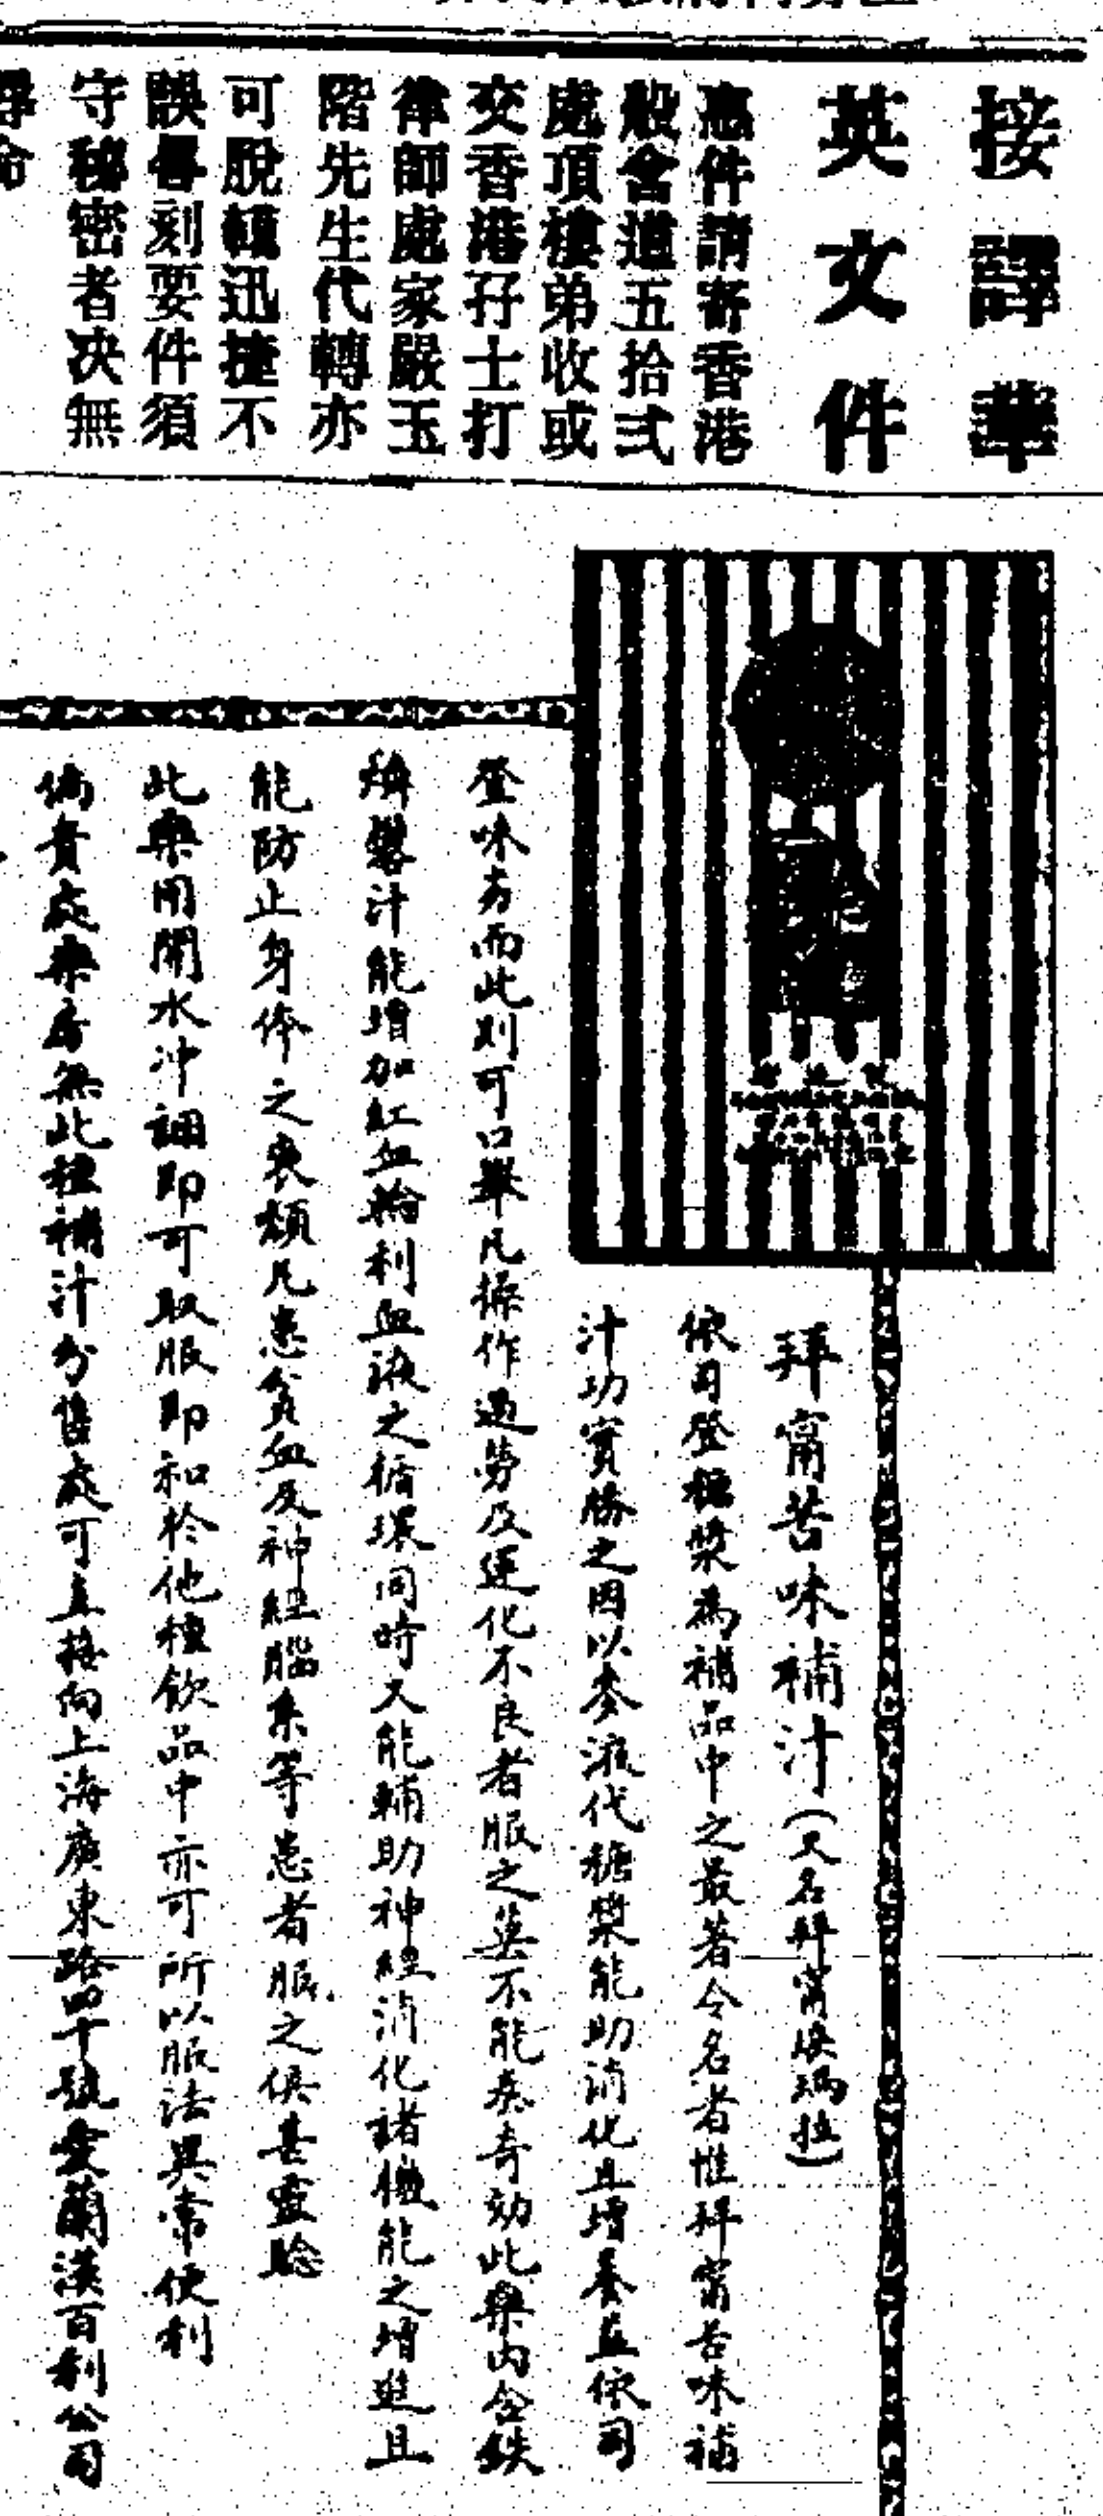 接譯華
英文件
惠件請寄香港
般含道五拾弍
處頂樓弟收或
交香港孖士打
律師處家嚴玉
階先生代轉亦
可脫穎迅捷不
誤晷刻要件須
守秘密者决無
拜甯苦味補汁(又名拜甯瑪拉)
依司登糖漿為補品中之最著令名者惟拜甯苦味補
汁功實勝之因以麥液代糖漿能助消化且增養益依司
登味劣而此則可口舉凡操作過勞及運化不良者服之莫不能奏奇効此藥內含鉄
燐礬汁能增加紅血輪利血液之循環同時又能輔助神經消化諸機能之增進且
能防止身体之衰頹凡患貧血及神經腦系等患者服之俱甚靈驗
此藥用開水冲調即可取服即和於他種飲品中亦可所以服法異常便利
倘貴處藥房無此種補汁分售處可直接向上海廣東路四十號愛蘭漢百利公司